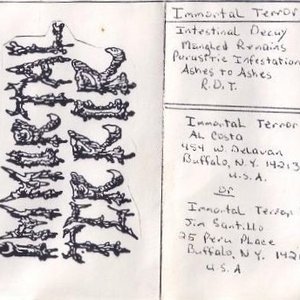 IMMORTAL
TERROR
Immortal Terror
Intestinal Decay
Mangled Remains
Parasitic Infestation
Ashes to Ashes
R.D.T.
Immortal Terror
Al Costa
484 W. Delavan
Buffalo, N.Y. 14213
U.S.A.
or
Immortal Terror
Jim Santillo
25 Peru Place
Buffalo, N.Y.
U.S.A